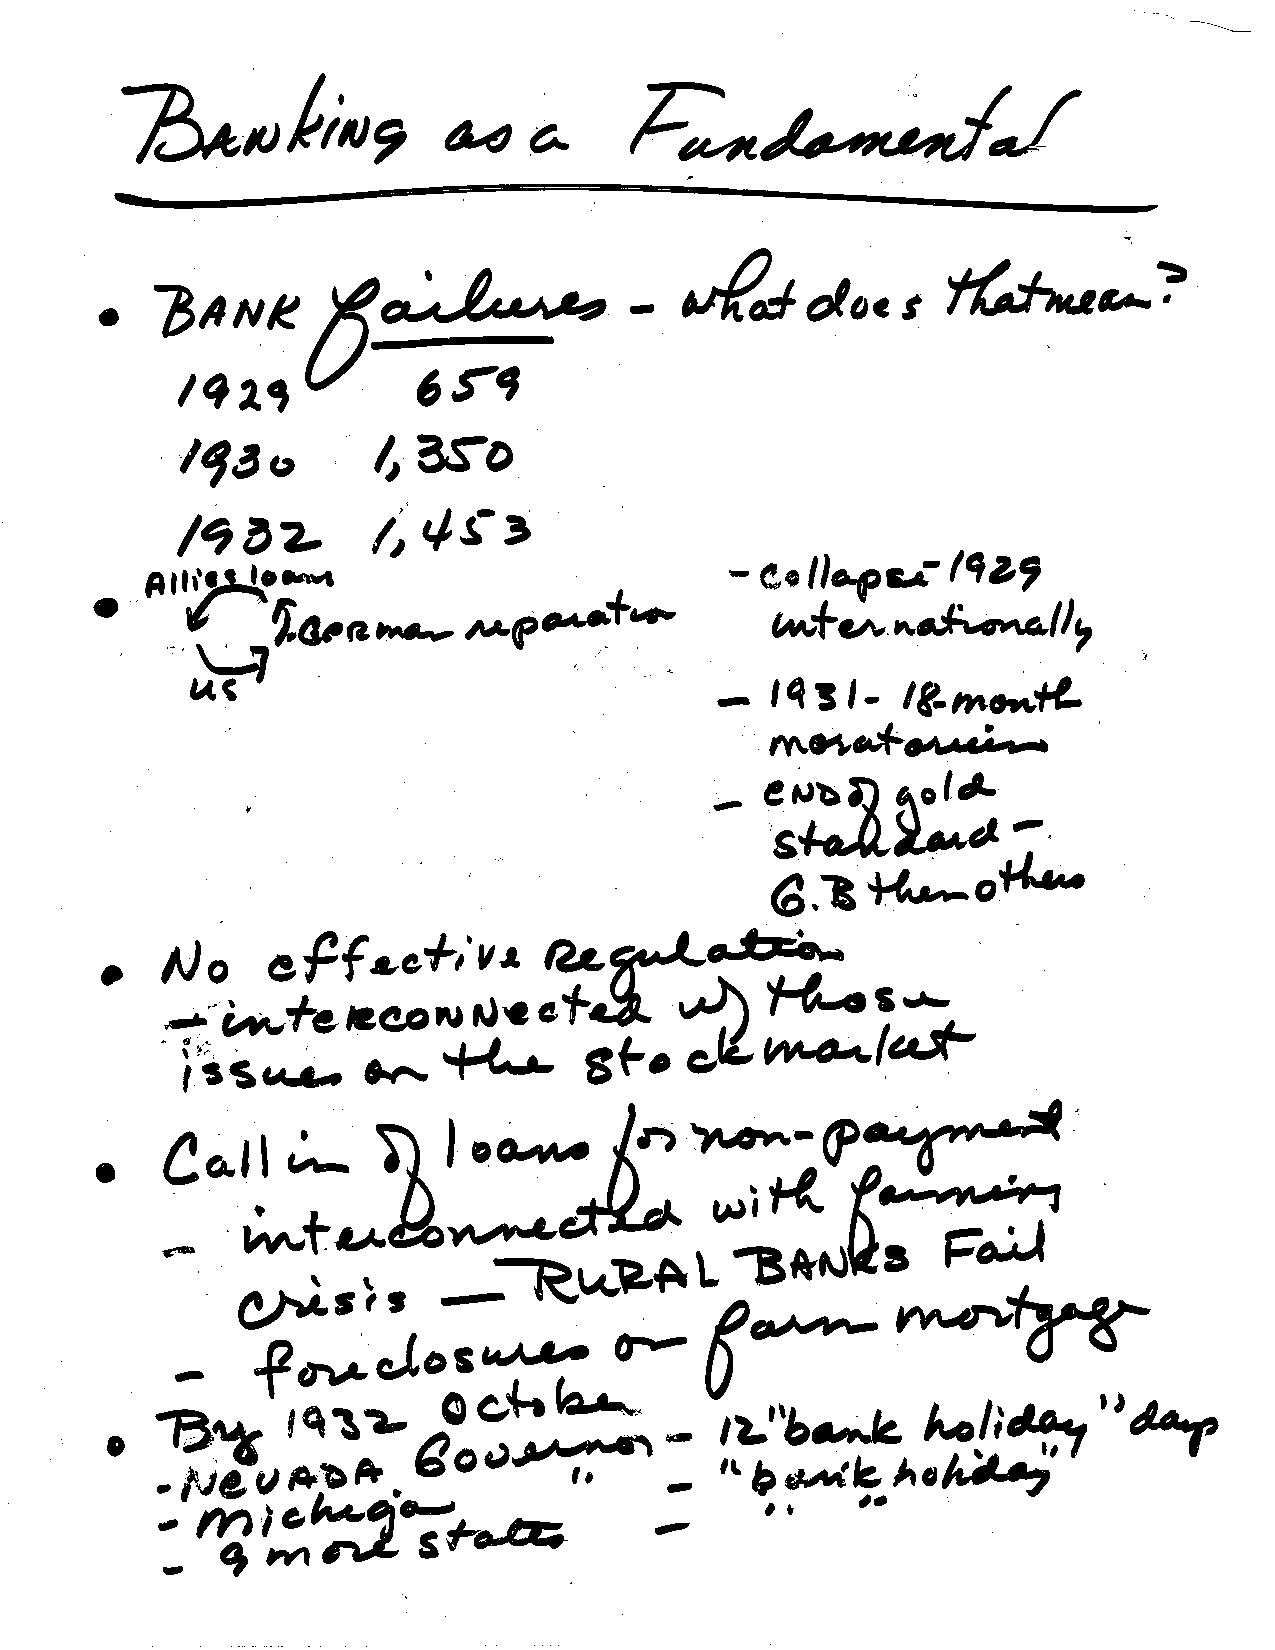 Banking as a Fundamental
• BANK failures - what does that mean?
1929 659
1930 1,350
1932 1,453
• Allies loans
German reparation
US
- collapse - 1929
internationally
- 1931 - 18-month
moratorium
- END of gold
standard -
G.B then others
• No effective Regulation
- interconnected w/ those
issues on the stock market
• Call in of loans for non-payment
- interconnected with farming
crisis — RURAL BANKS Fail
- foreclosures on farm mortgage
• By 1932 October
- NEVADA Governor - 12 "bank holiday" days
- Michigan " - "bank holiday"
- 9 more states - " "